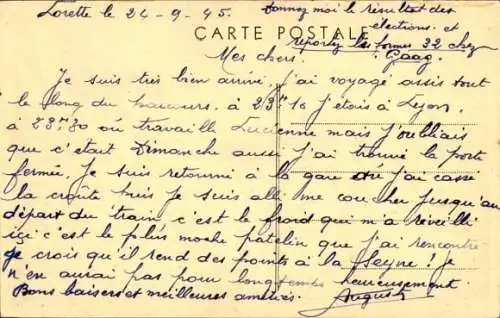 Lorette le 24-9-45.
Donnez moi le résultat des
élections. et
CARTE POSTALE
reportez les formes 32 chez
Gaag.
Mes chers.
Je suis très bien arrivé. j'ai voyagé assis tout
le long du parcours. à 23h16 j'étois à Lyon.
à 23h30 où travaille Lucienne mais j'oubliais
que c'était Dimanche aussi j'ai trouvé la porte
fermée. Je suis retourné à la gare j'ai cassé
la croûte puis je suis allé me coucher jusqu'au
départ du train c'est le froid qui m'a réveillé
içi c'est le plus moche patelin que j'ai rencontré
je crois qu'il rend des points à la Seyne! Je
n'en aurai pas pour longtemps heureusement.
Bons baisers et meilleures amitiés.
August